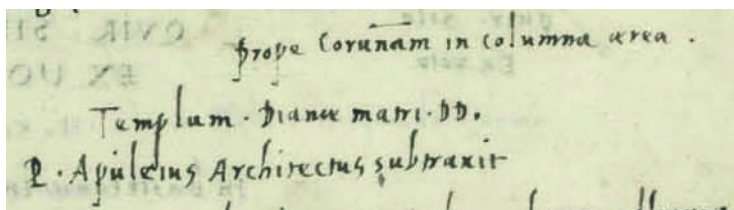 prope Corunam in columna area .
Templum · Dianæ matri · DD.
P · Apuleius Architectus subtraxit